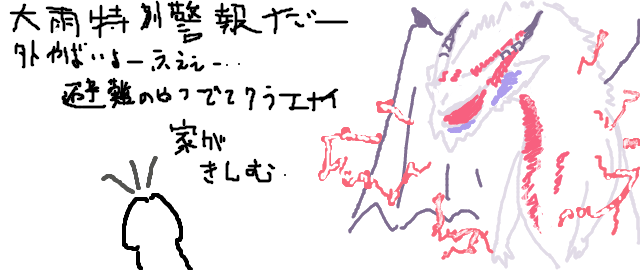 大雨特別警報だー
外やばいよーふぇぇー..
避難のやつでてクうエナイ
家が
きしむ..